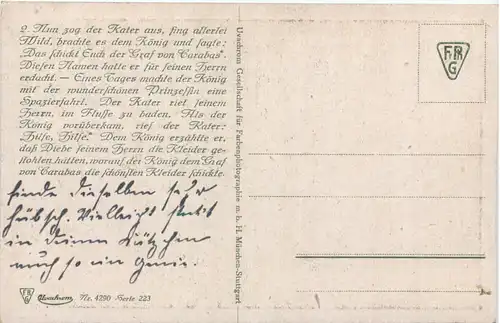 2. Nun zog der Kater aus, fing allerlei
Wild, brachte es dem König und sagte:
"Das schickt Euch der Graf von Carabas".
Diesen Namen hatte er für seinen Herrn
erdacht. — Eines Tages machte der König
mit der wunderschönen Prinzessin eine
Spazierfahrt. Der Kater rief seinem
Herrn, im Flusse zu baden. Als der
König vorüberkam, rief der Kater:
"Hilfe, Hilfe." Dem König erzählte er,
daß Diebe seinem Herrn die Kleider ge-
stohlen hätten, worauf der König dem Graf
von Carabas die schönsten Kleider schickte.
finde dieselben sehr
hübsch. Vielleicht steckt
in deinem Kätzchen
auch so ein Genie.
FPG
Uvachrom Nr. 4290 Serie 223
Uvachrom Gesellschaft für Farbenphotographie m. b. H. München-Stuttgart
FPG